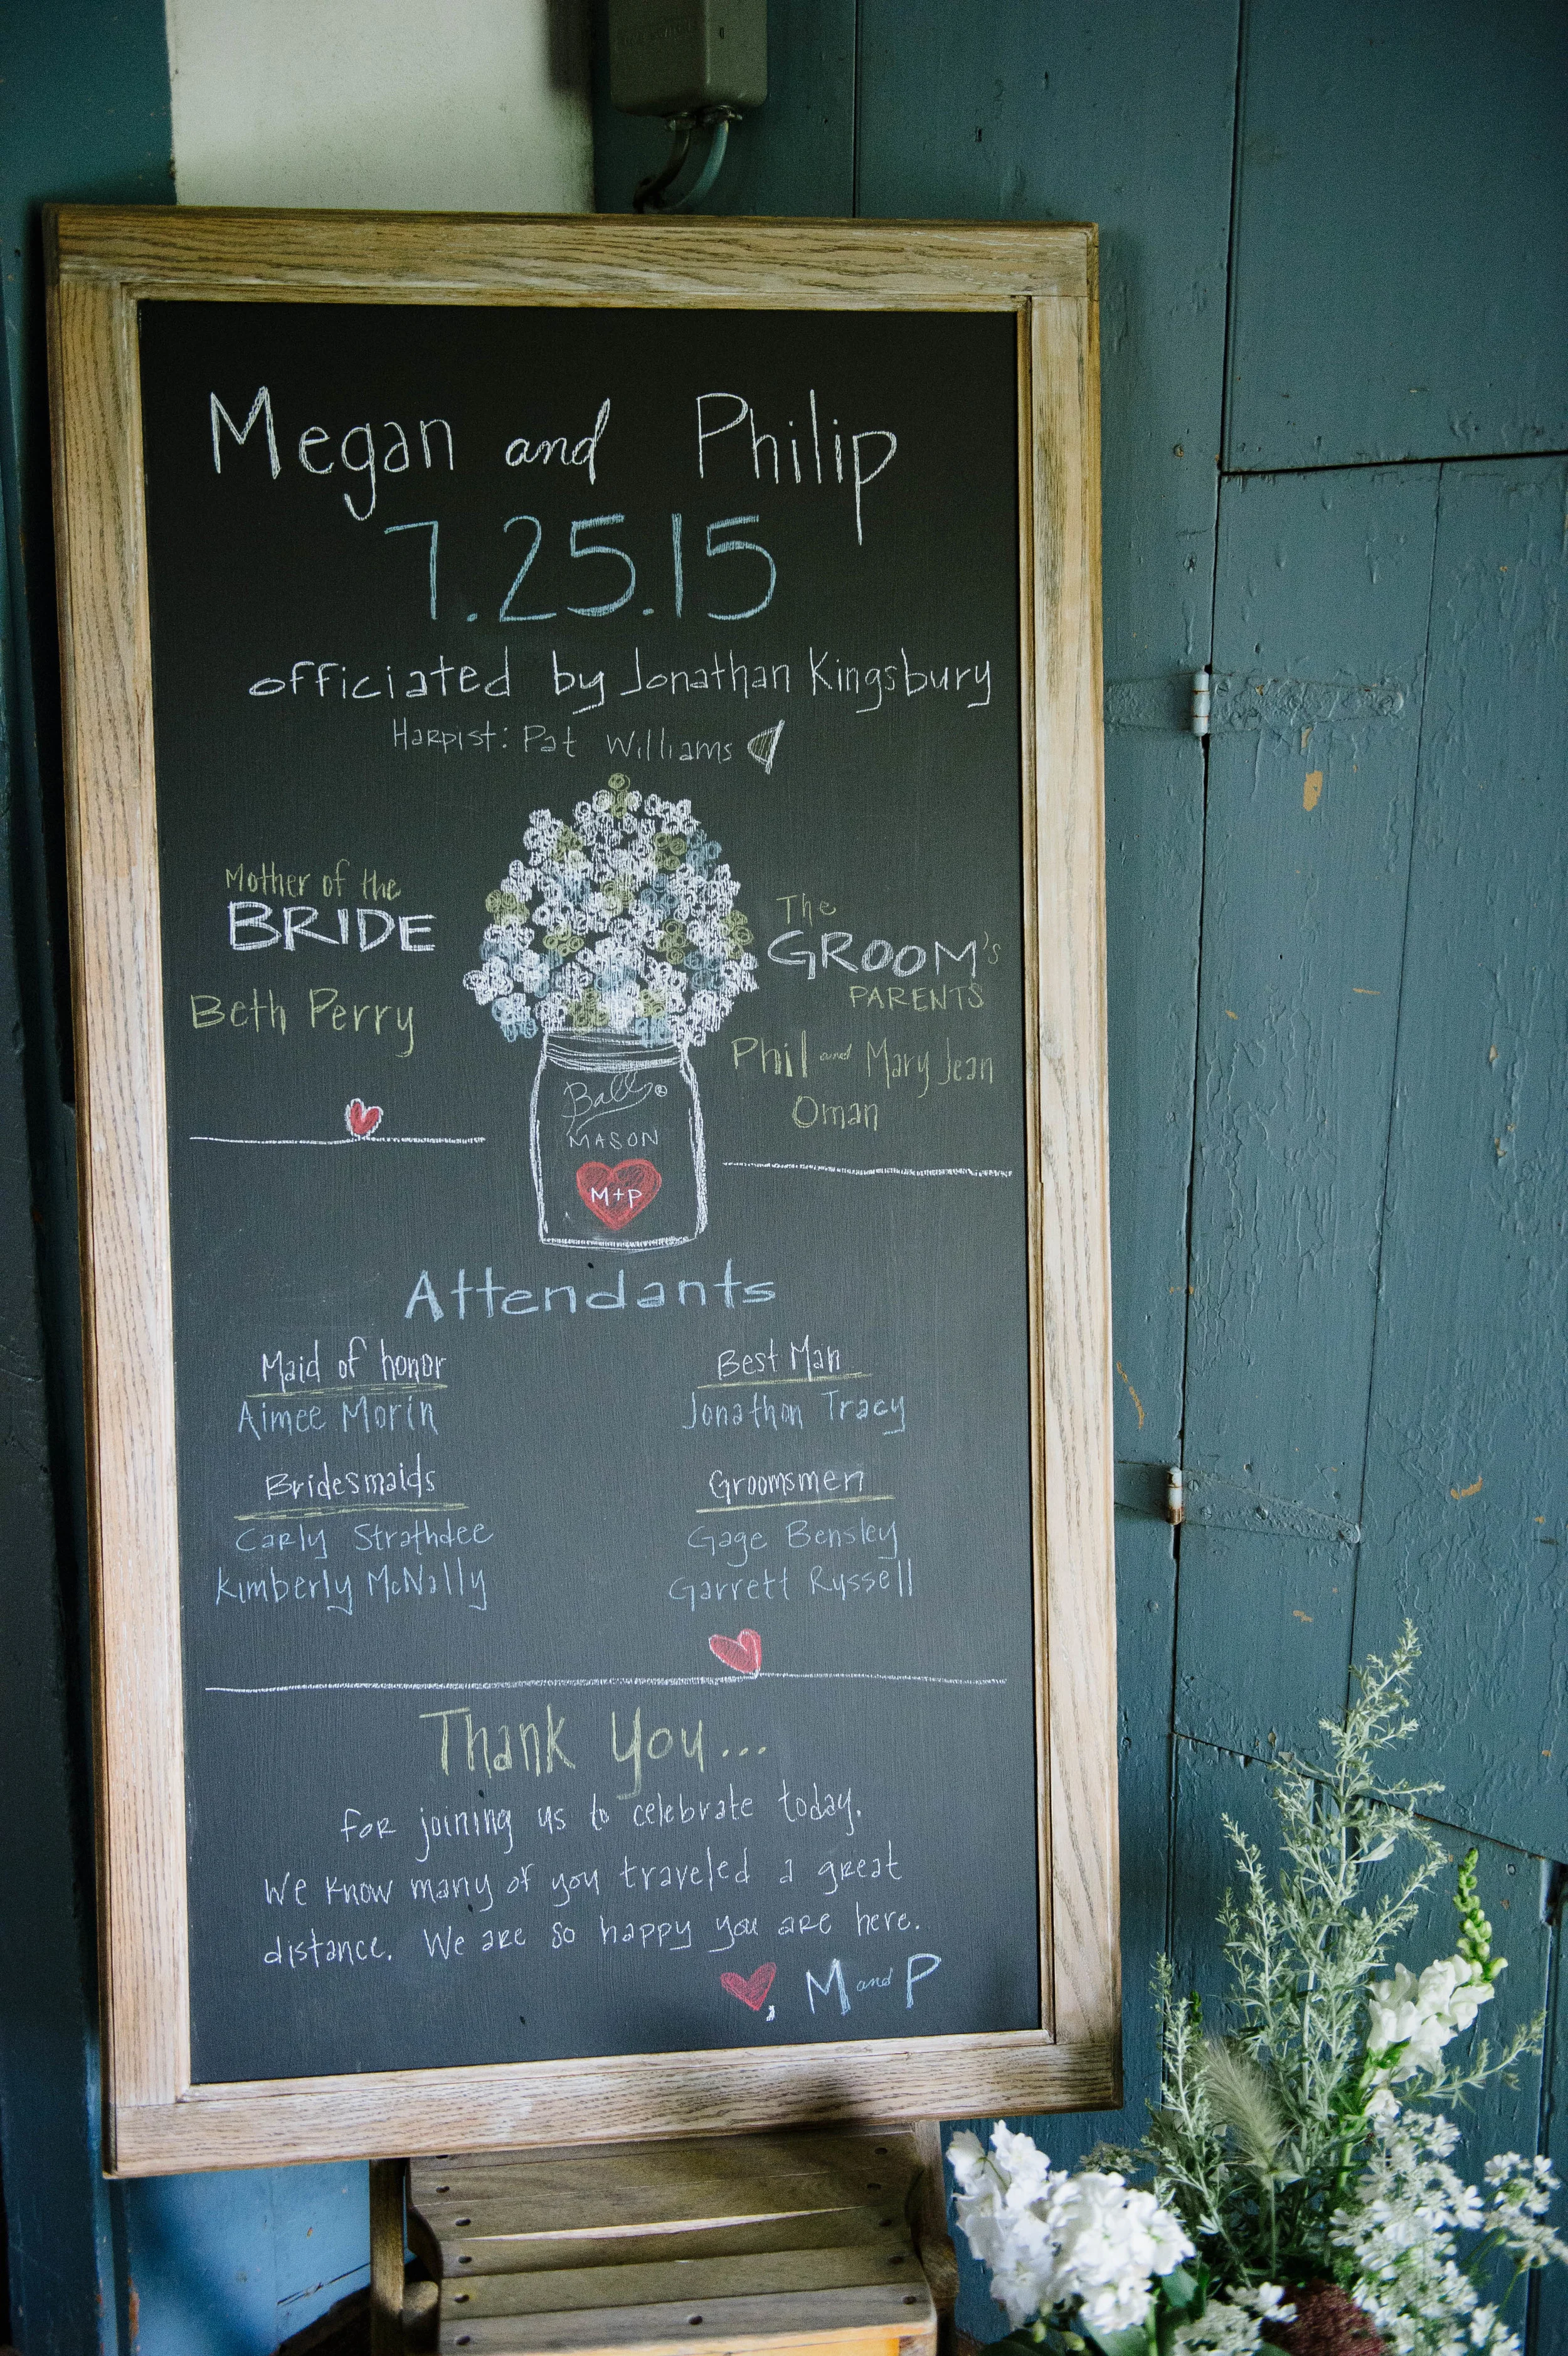 Megan and Philip
7.25.15
officiated by Jonathan Kingsbury
Harpist: Pat Williams
Mother of the
BRIDE
Beth Perry
The
GROOM's
PARENTS
Phil and Mary Jean
Oman
Ball®
MASON
M+P
Attendants
Maid of honor
Aimee Morin
Best Man
Jonathon Tracy
Bridesmaids
Carly Strathdee
Kimberly McNally
Groomsmen
Gage Bensley
Garrett Russell
Thank You...
for joining us to celebrate today.
We know many of you traveled a great
distance. We are so happy you are here.
, M and P